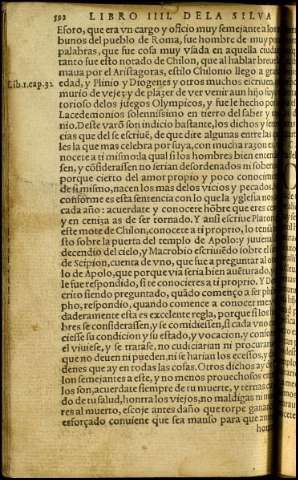 592 LIBRO IIII. DELA SILVA
Eforo, que era vn cargo y oficio muy semejante a los
bunos del pueblo de Roma, fue hombre de muy po
palabras, que fue cosa muy vsada en aquella ciud
tanto fue esto notado de Chilon, que al hablar breue
maua por el Aristagoras, estilo Chilonio llego a gra
Lib. 1. cap. 32. edad, y Plinio y Diogenes y otros muchos escriuen,
murio de vejez y de plazer de ver venir aun hijo suyo
torioso delos juegos Olympicos, y fue le hecho por
Lacedemonios solennissimo en tierro del saber y
nio. Deste varõ son indicio bastante, los dichos y sen
cias que del se escriuẽ, de que dire algunas entre las
les la que mas celebra por suya, con mucha razon es
nocete a ti mismo: la qual si los hombres bien enten
sen, y cõsiderassen no serian desordenados ni sober
porque cierto del amor propio y poco conocim
de si mismo, nacen los mas delos vicios y pecados.
conforme es esta sentencia con lo que la yglesia nos
cada año: acuerdate y conocete hõbre que eres ce
y en ceniza as de ser tornado. Y ansi escriue Platon
este mote de Chilon, conocete a ti proprio, lo tenia
sto sobre la puerta del templo de Apolo: y juuenal
decendio del cielo, y Macrobio escriuiẽdo sobre el s
de Scipion, cuenta de vno, que fue a preguntar al o
lo de Apolo, que porque via seria bien auẽturado, y
le fue respondido, si te conocieres a ti proprio. Y De
crito siendo preguntado, quãdo començo a ser phi
pho, respondio, quando comence a conocer me, v
daderamente esta es excelente regla, porque si los h
bres se considerassen, y se comidiessen, si cada vno
ciesse su condicion y su estado, y vocacion, y confor
el viuiesse, y se tratase, no cudiciarian ni procurarian
que no deuen ni pueden, ni se harian los ecessos, y de
denes que ay en todas las cosas. Otros dichos ay d
lon semejantes a este, y no menos prouechosos en
los son, acuerdate siempre de tu muerte, y ternas
do de tu salud, honrra los viejos, no maldigas ni m
res al muerto, escoje antes daño que torpe ganan
esforçado conuiene que sea manso para que an